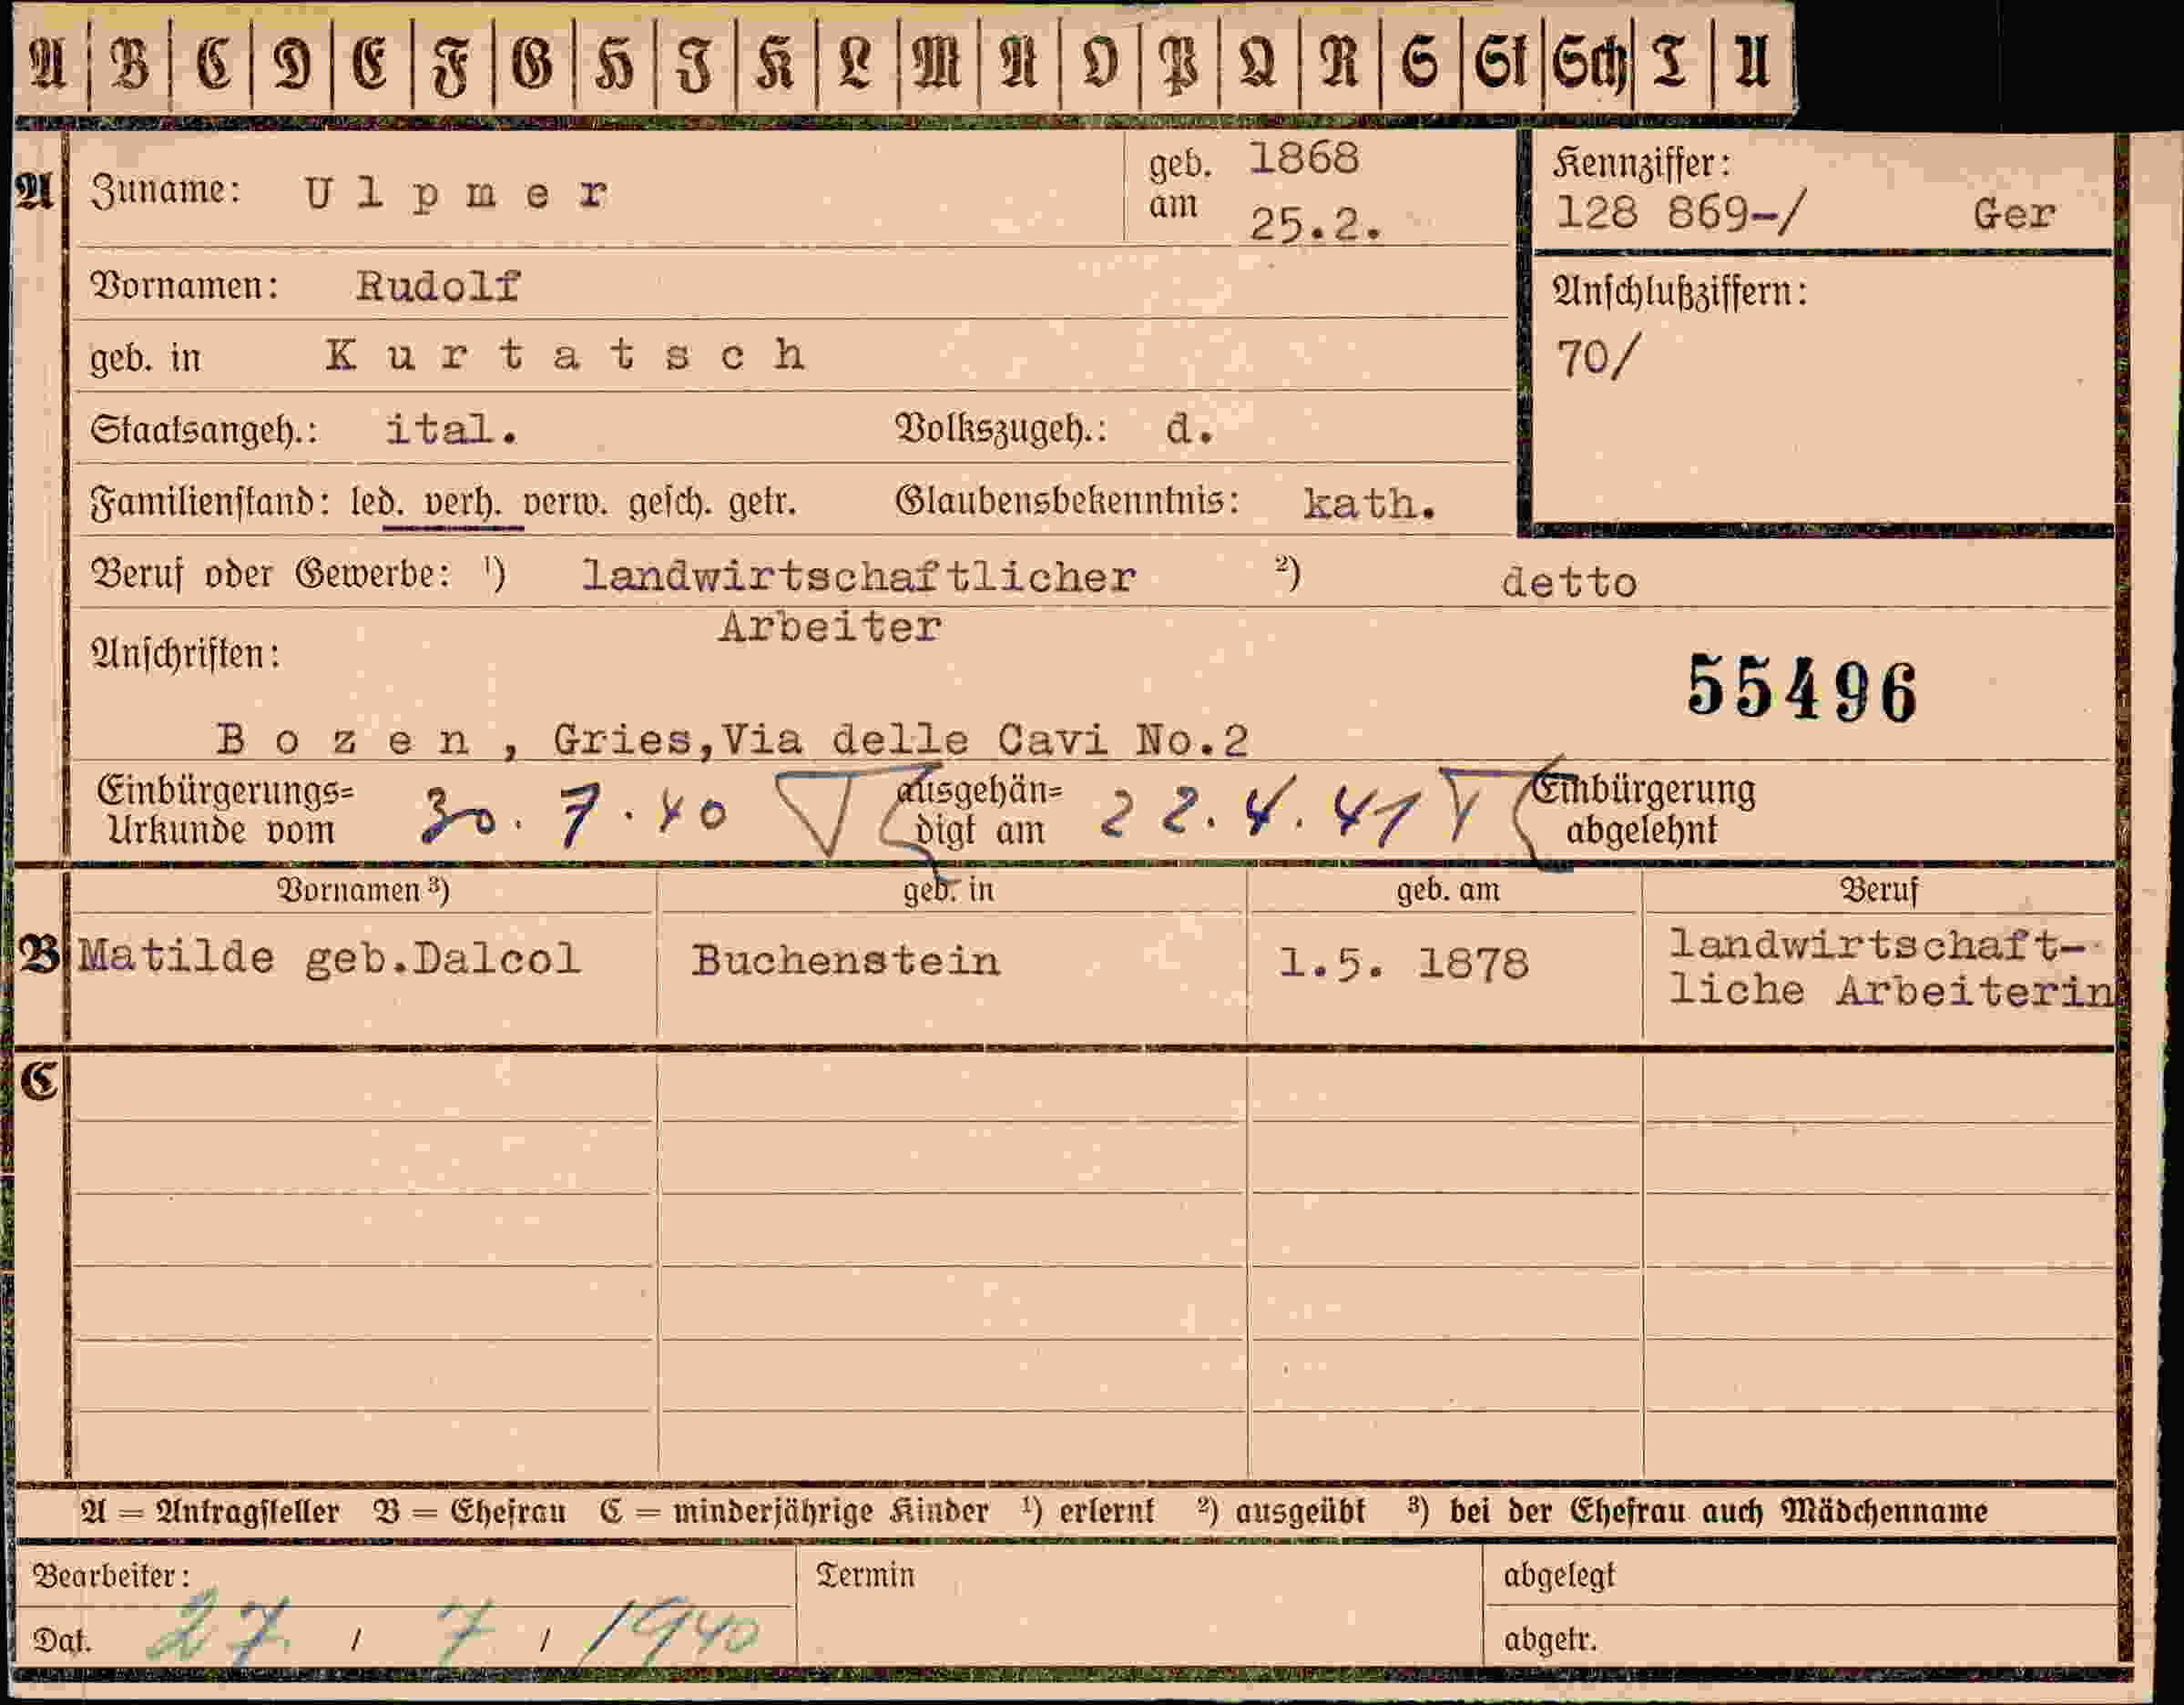 A B C D E F G H J K L M N O P Q R S St Sch T U
A Zuname: Ulpmer geb. am 1868 25.2. Kennziffer:
128 869-/ Ger
Vornamen: Rudolf Anschlußziffern:
geb. in Kurtatsch 70/
Staatsangeh.: ital. Volkszugeh.: d.
Familienstand: led. verh. verw. gesch. getr. Glaubensbekenntnis: kath.
Beruf oder Gewerbe: ¹) landwirtschaftlicher ²) detto
Arbeiter
Anschriften:
55496
Bozen, Gries,Via delle Cavi No.2
Einbürgerungs= ausgehän= Einbürgerung
Urkunde vom 30.7.40 digt am 22.4.41 abgelehnt
Vornamen ³) geb. in geb. am Beruf
B Matilde geb.Dalcol Buchenstein 1.5. 1878 landwirtschaft-
liche Arbeiterin
C
A = Antragsteller B = Ehefrau C = minderjährige Kinder ¹) erlernt ²) ausgeübt ³) bei der Ehefrau auch Mädchenname
Bearbeiter: Termin abgelegt
Dat. 27 / 7 / 1940 abgetr.